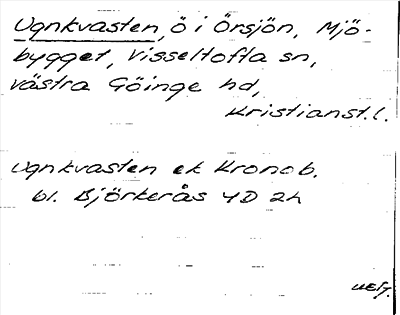 Ugnkvasten, ö i Örsjön, Mjö-
bygget, Visseltofta sn,
västra Göinge hd,
Kristianst.l.
Ugnkvasten ek Kronob.
bl. Björkerås 4D 2h